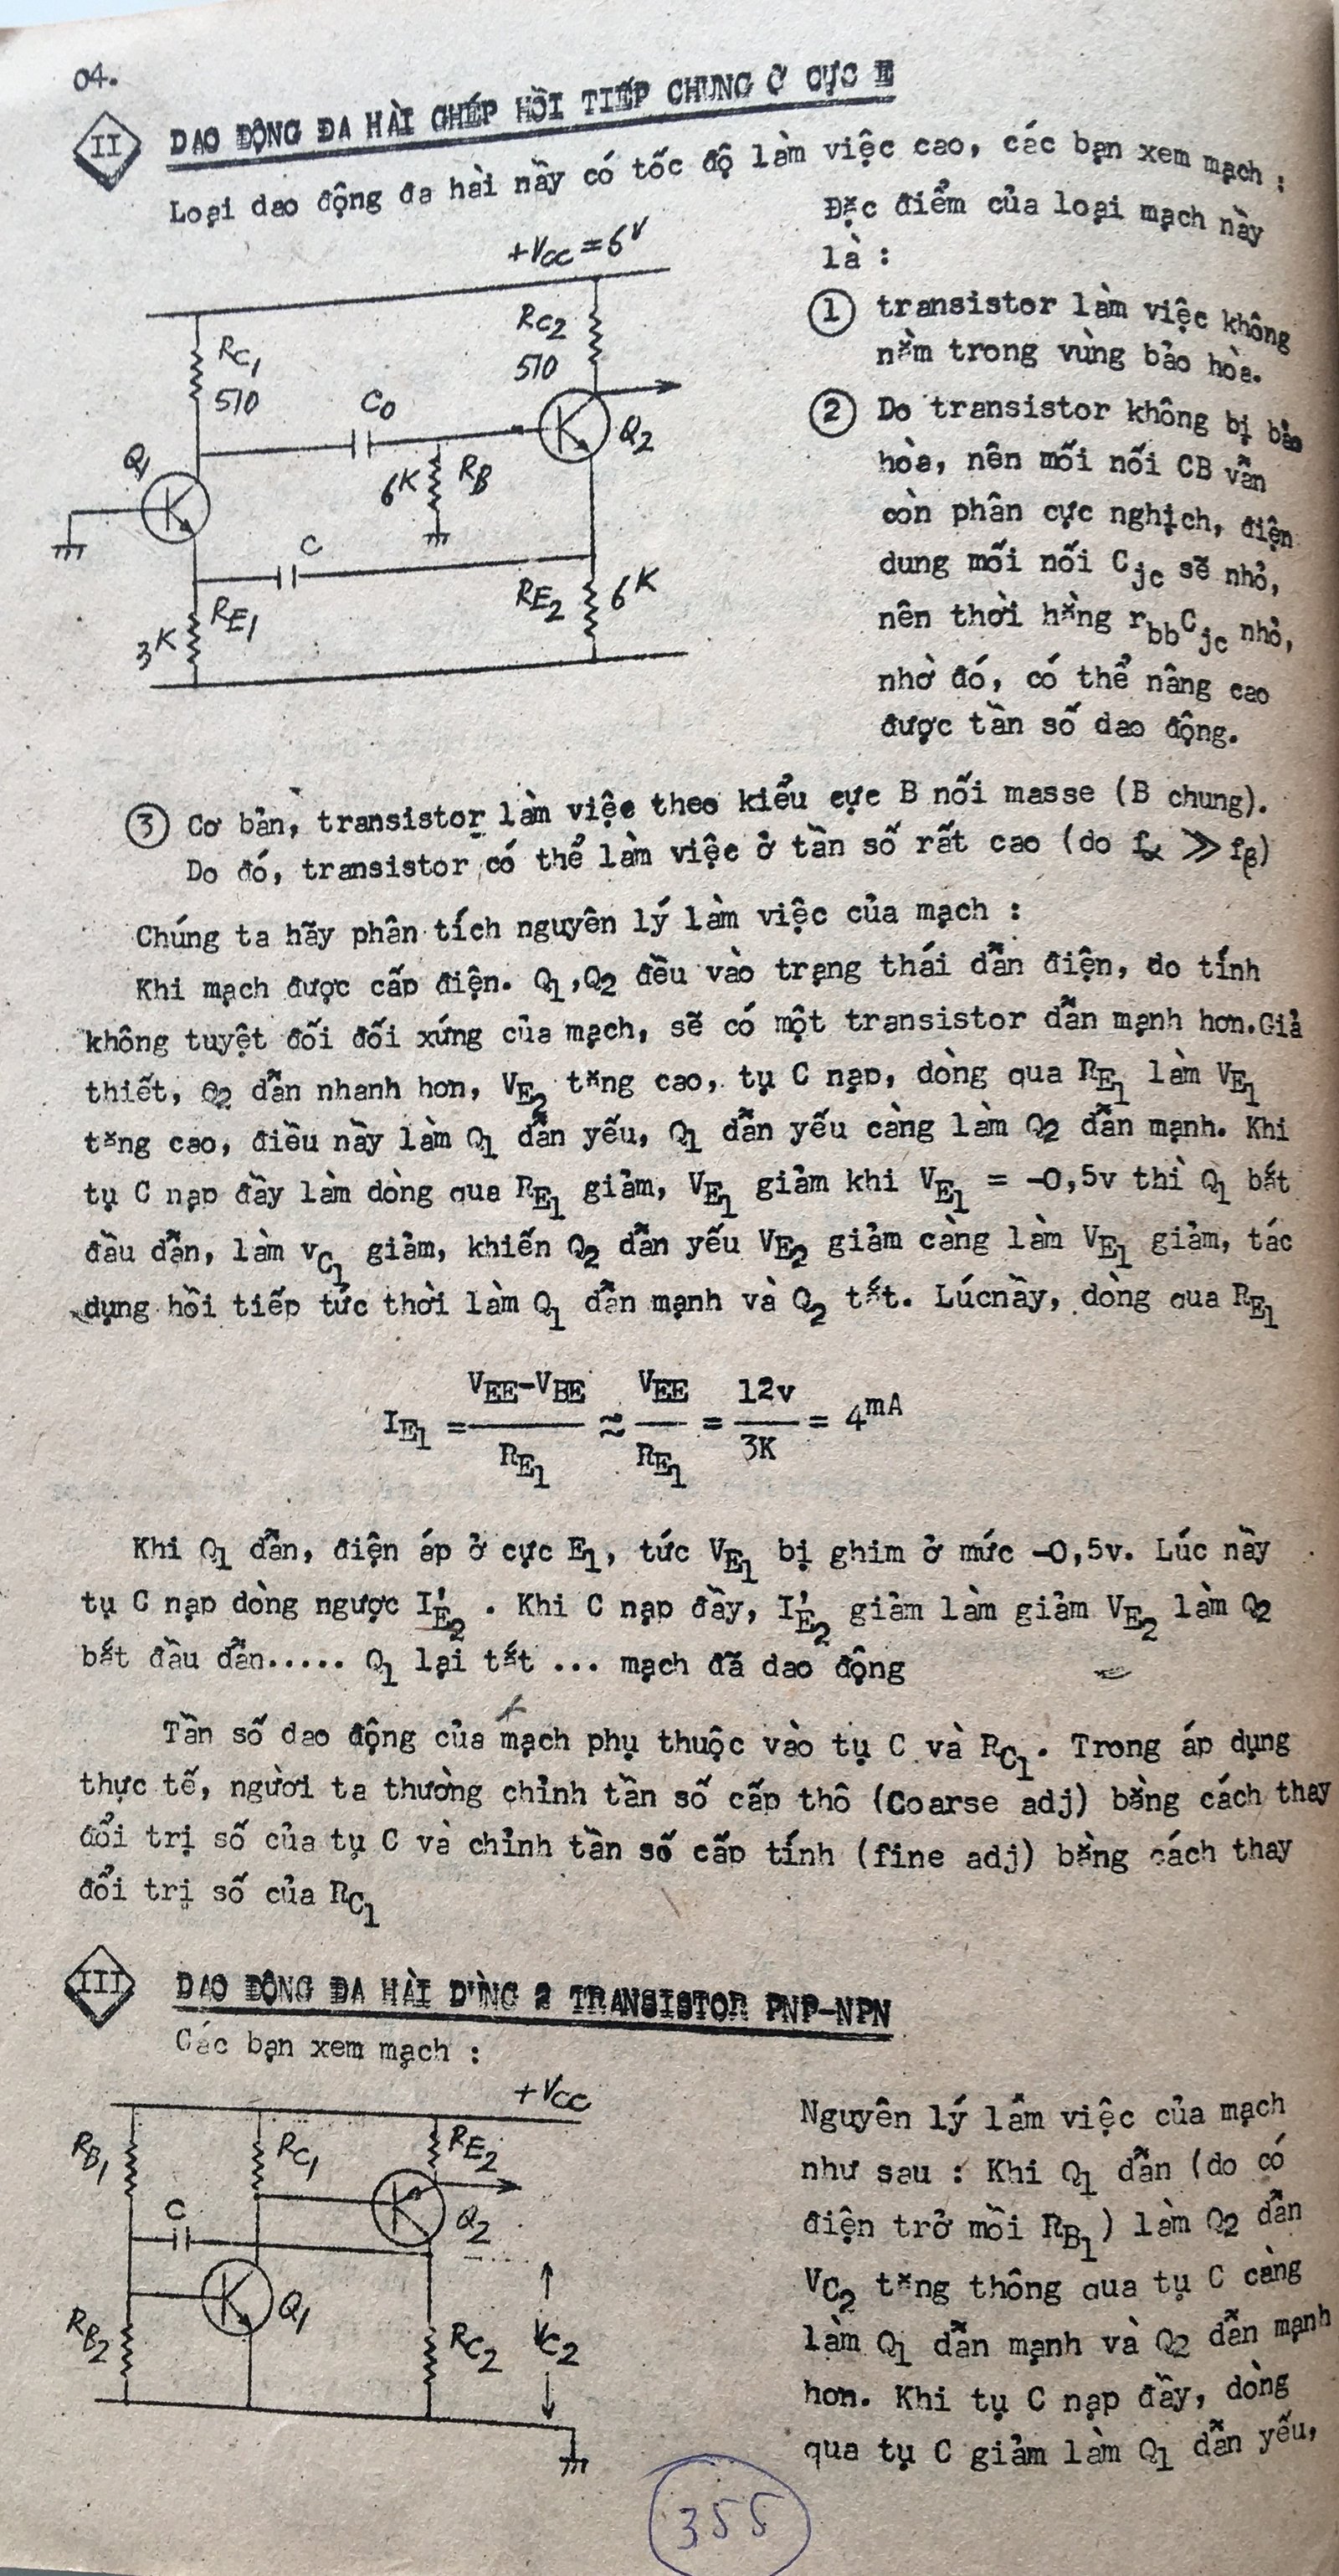 04.
II DAO ĐỘNG ĐA HÀI GHÉP HỒI TIẾP CHUNG Ở CỰC E
Loại dao động đa hài nầy có tốc độ làm việc cao, các bạn xem mạch :
+VCC = 6V
RC1
510
RC2
510
C0
Q1
Q2
6K
RB
C
RE1
3K
RE2
6K
Đặc điểm của loại mạch nầy
là :
1 transistor làm việc không
nằm trong vùng bảo hòa.
2 Do transistor không bị bảo
hòa, nên mối nối CB vẫn
còn phân cực nghịch, điện
dung mối nối Cjc sẽ nhỏ,
nên thời hằng rbbCjc nhỏ,
nhờ đó, có thể nâng cao
được tần số dao động.
3 Cơ bản, transistor làm việc theo kiểu cực B nối masse (B chung).
Do đó, transistor có thể làm việc ở tần số rất cao (do fα ≫ fβ)
Chúng ta hãy phân tích nguyên lý làm việc của mạch :
Khi mạch được cấp điện. Q1,Q2 đều vào trạng thái dẫn điện, do tính
không tuyệt đối đối xứng của mạch, sẽ có một transistor dẫn mạnh hơn.Giả
thiết, Q2 dẫn nhanh hơn, VE2 tăng cao, tụ C nạp, dòng qua RE1 làm VE1
tăng cao, điều nầy làm Q1 dẫn yếu, Q1 dẫn yếu càng làm Q2 dẫn mạnh. Khi
tụ C nạp đầy làm dòng qua RE1 giảm, VE1 giảm khi VE1 = -0,5v thì Q1 bắt
đầu dẫn, làm vC1 giảm, khiến Q2 dẫn yếu VE2 giảm càng làm VE1 giảm, tác
dụng hồi tiếp tức thời làm Q1 dẫn mạnh và Q2 tắt. Lúcnầy, dòng qua RE1
IE1 = VEE-VBE / RE1 ≈ VEE / RE1 = 12v / 3K = 4mA
Khi Q1 dẫn, điện áp ở cực E1, tức VE1 bị ghim ở mức -0,5v. Lúc nầy
tụ C nạp dòng ngược I'E2 . Khi C nạp đầy, I'E2 giảm làm giảm VE2 làm Q2
bắt đầu dẫn..... Q1 lại tắt ... mạch đã dao động
Tần số dao động của mạch phụ thuộc vào tụ C và RC1. Trong áp dụng
thực tế, người ta thường chỉnh tần số cấp thô (Coarse adj) bằng cách thay
đổi trị số của tụ C và chỉnh tần số cấp tính (fine adj) bằng cách thay
đổi trị số của RC1
III DAO ĐỘNG ĐA HÀI DÙNG 2 TRANSISTOR PNP-NPN
Các bạn xem mạch :
+VCC
RB1
RC1
RE2
C
Q2
Q1
RB2
RC2
VC2
Nguyên lý lầm việc của mạch
như sau : Khi Q1 dẫn (do có
điện trở mồi RB1) làm Q2 dẫn
VC2 tăng thông qua tụ C càng
làm Q1 dẫn mạnh và Q2 dẫn mạnh
hơn. Khi tụ C nạp đầy, dòng
qua tụ C giảm làm Q1 dẫn yếu,
355